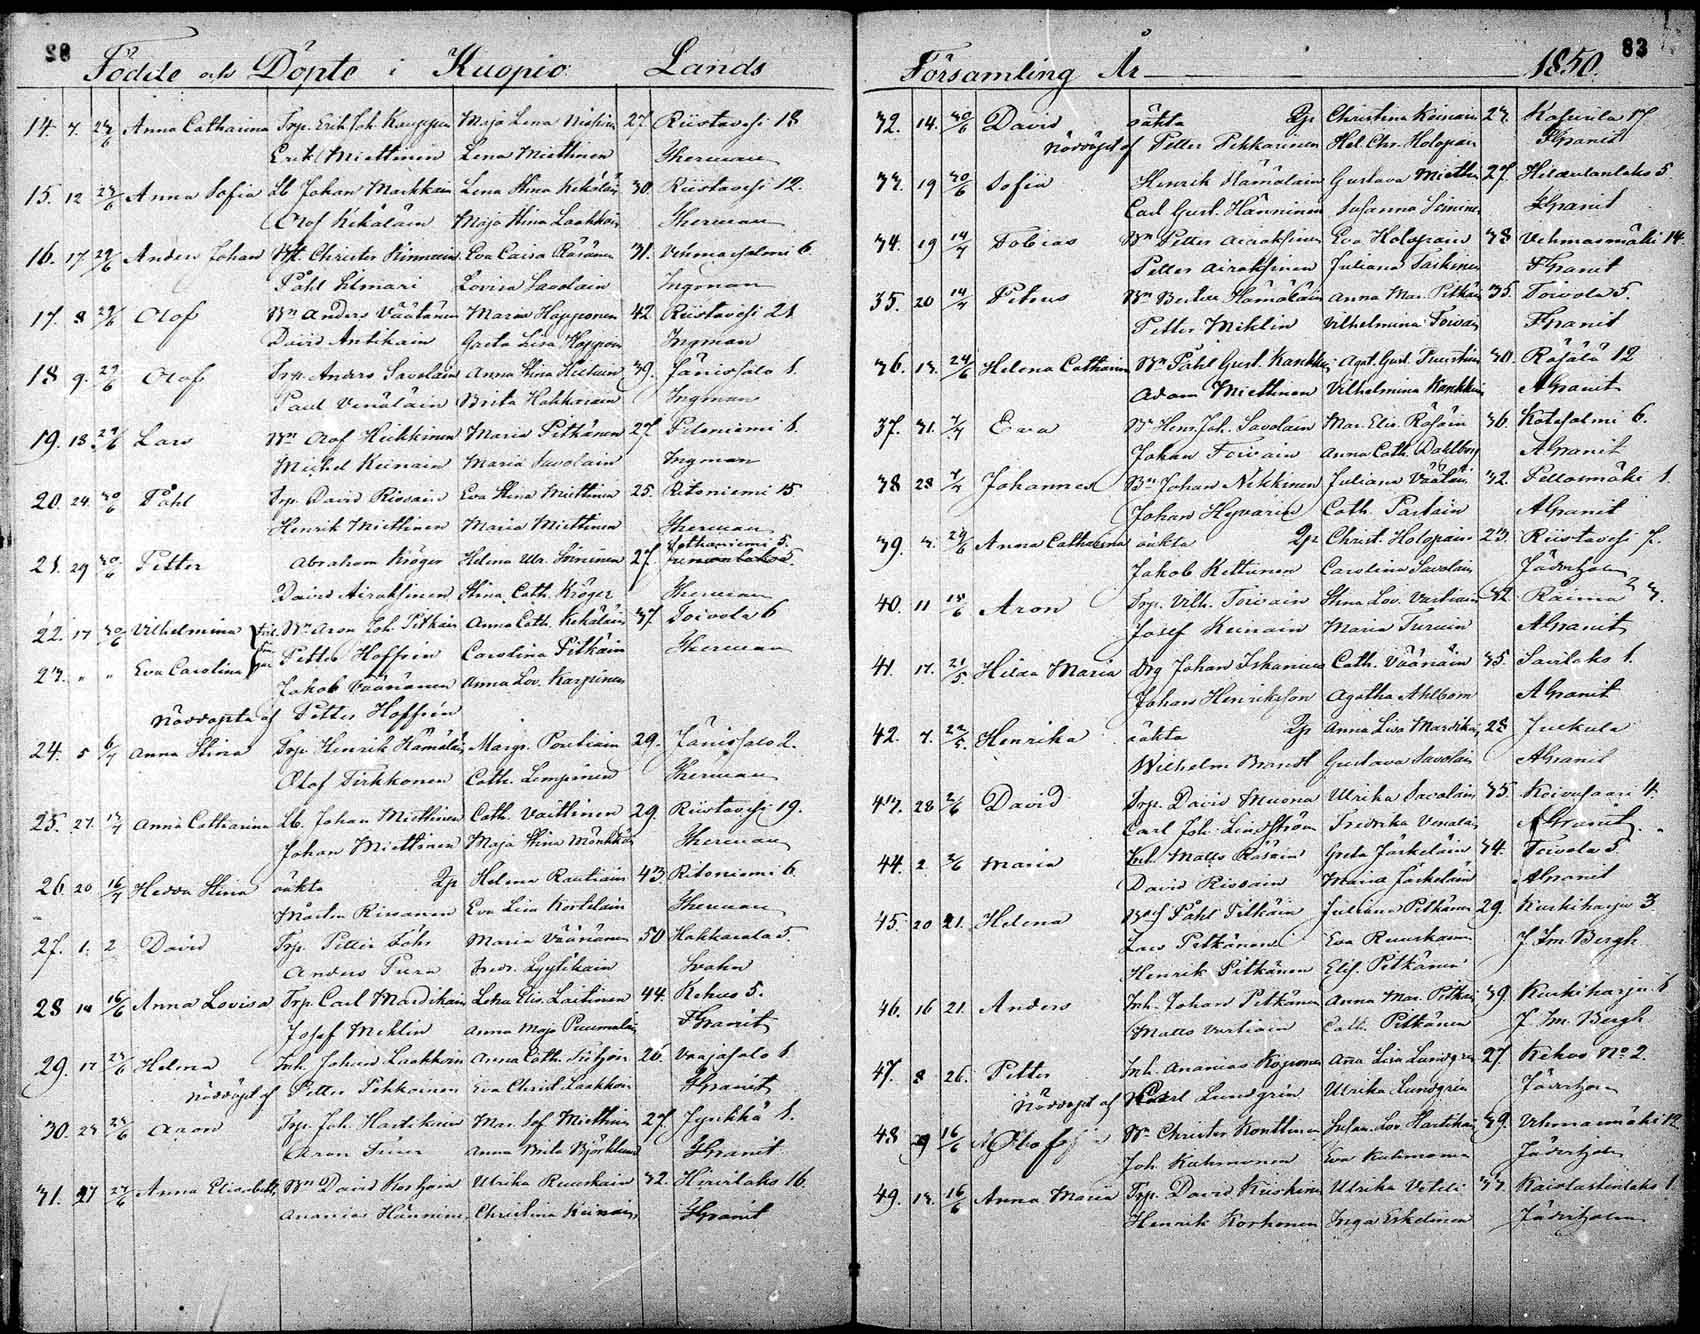 28 Födde och Döpte i Kuopio Lands
14. 7. 23/6 Anna Catharina Trp. Erik Joh. Kauppin Maja Lena Nissinen 27 Riistavesi 18
Erik Miettinen Lena Miettinen Sherman
15. 12 23/6 Anna Sofia Lb Johan Markkain Lena Stina Kekäläin 30 Riistavesi 12.
Olof Kekäläin Maja Stina Laakkoin Sherman
16. 17 29/6 Anders Johan Christer Rönnuin Eva Caisa Räsänen 31. Vehmasalmi 6
Påhl Ilmari Lovisa Savolain Ingman
17. 8 29/6 Olof Bn Anders Väätänen Maria Happonen 42 Riistavesi 21
David Antikain Greta Lisa Happoin Ingman
18 9. 29/6 Olof Trp. Anders Savolain Anna Stina Hiltuin 39. Jänissalo 1.
Paul Venäläin Brita Hakkarain Ingman
19. 18. 29/6 Lars Bn Olof Heikkinen Maria Pitkänen 27. Peloniemi 1.
Michel Keinain Maria Savolain Ingman
20. 24. 30/6 Påhl Trp. David Rissain Eva Stina Miettinen 25. Ritoniemi 15
Henrik Miettinen Maria Miettinen Sherman
21. 29 30/6 Petter Abraham Kröger Helena Ulr. Sirninen 27. 5.
David Airaksinen Stina Cath. Kröger Sherman
22. 17 30/6 Vilhelmina Bn Aron Joh. Pitkäin Anna Cath. Kekäläin 37 Toivola 6
Petter Hoffrén Carolina Pitkäin Sherman
23. " " Eva Carolina Jakob Väänänen Anna Lov. Karpinen
Nöddöpta af Petter Hoffrén
24. 5 6/7 Anna Stina Trp. Henrik Hämäläin Margr. Poutiain 29. Jänissalo 2.
Olof Tirkkonen Cath. Lempinen Sherman
25. 27. 14/7 Anna Catharina Lb. Johan Miettinen Cath. Vaittinen 29. Riistavesi 19.
Johan Miettinen Maja Stina Mönkkön Sherman
26 20 16/7 Hedda Stina oäkta Qp Helena Rautiain 43. Ritoniemi 6.
Mårten Rissanen Eva Lisa Kortelain Sherman
27. 1. 2 David Trp. Petter Föhr Maria Väänänen 50 Hakkarala 5.
Anders Tura Fredr. Lyytikäin Svahn
28 14 16/6 Anna Lovisa Trp. Carl Mardikain Lena Elis. Laitinen 44. Rehus 5.
Josef Miklin Anna Maja Puumalain FGranit
29. 17 23/6 Helena Inh. Johan Laakkoin Anna Cath. 26. Vaajasalo 1.
Nöddöpt af Petter Pekkarinen Eva Christ. Laakkoin FGranit
30. 23 23/6 Aaron Trp. Joh. Hartikain Mar. Sof. Miettinen 27. Jynkkä 1.
Aron Anna Brita Björklund FGranit
31. 27 23/6 Anna Elisabeth Bn David Korhoin Ulrika Ruuskain 32. Hirvilaks 16.
Ananias Hänninen Christina Keinain FGranit
Församling År 1850. 83
32. 14. 30/6 David oäkta Qp Christina Keinain 23. Kasurila 17
Nöddöpt af Petter Pekkarinen Hel. Chr. Holopain FGranit
33. 19 30/6 Sofia Henrik Hämäläin Gustava Miettin 27. Hiltulanlaks 5.
Carl Gust. Hänninen Susanna Siminen FGranit
34. 19 14/7 Tobias Bn Petter Airaksinen Eva Holopain 38 Vehmasmäki 14.
Petter Airaksinen Juliana Taskinen FGranit
35. 20 14/7 Petrus Bn Hämäläin Anna Mar. Pitkän 35. Toivola 5.
Petter Miklin Vilhelmina Toivain FGranit
36. 13. 24/6 Helena Catharina Bn Påhl Gust. Kankkun Agat. Gust. 30. Räsälä 12
Adam Miettinen Vilhelmina Kankkun AGranit
37. 31. 7/7 Eva Bn Henr. Joh. Savolain Mar. Elis. Räsäin 36. Kotasalmi 6.
Johan Toivain Anna Cath. Dahlborg AGranit
38 28 7/7 Johannes Bn Johan Nikkinen Juliana Väätäin 32. Pellosmäki 1.
Johan Hyvarin Cath. Partain AGranit
39. 3. 29/6 Anna Catharina oäkta Qp Christ. Holopain 23. Riistavesi 7.
Jakob Kettunen Carolina Savolain Jäderholm
40. 11 15/6 Aron Trp. Vilh. Toivain Stina Lov. Vartiain 32. Räimä 3.
Josef Keinain Maria Turuin AGranit
41 17. 21/5. Hilda Maria Drg Johan Ishanius Cath. Väänäin 35. Savilaks 1.
Johan Henriksson Agatha Ahlbom AGranit
42. 7. 22/5. Henrika oäkta Qp Anna Lisa Mardikain 28 Julkula
Wilhelm Brandt Gustava Savolain AGranit
43. 28 2/6 David Trp. David Muona Ulrika Savolain 35. Koivusaari 4.
Carl Joh. Lindström Fredrika Venäläin AGranit
44. 2 2/6 Maria Inh. Matts Räsäin Greta Jäskeläin 34. Toivola 5.
David Rissain Maria Jäskeläin AGranit
45. 20 21. Helena Påhl Pitkäin Juliana Pitkänen 29. Kurkiharju 3
Lars Pitkänen Eva Ruuskain J. Im. Bergh
Henrik Pitkänen Elis. Pitkänen
46. 16 21. Anders Inh. Johan Pitkänen Anna Mar. Pitkän 39. Kurkiharju 6
Matts Vartiain Cath. Pitkänen J. Im. Bergh
47. 8 26. Petter Inh. Ananias Koponen Ana Lisa Lundgren 27. Kehvo No 2.
Nöddöpt af Carl Lundgrén Ulrika Lundgrén Jäderholm
48 29 16/6 Olof Bn Christer Konttinen Susan. Lov. Hartikain 39. Vehmasmäki 12
Joh. Kuhmonen Eva Kuhmonen Jäderholm
49. 13. 16/6 Anna Maria Trp. David Kuosmin Ulrika Vehvi 33 Kaislastenlaks 1.
Henrik Korhonen Inga Eskelinen Jäderholm